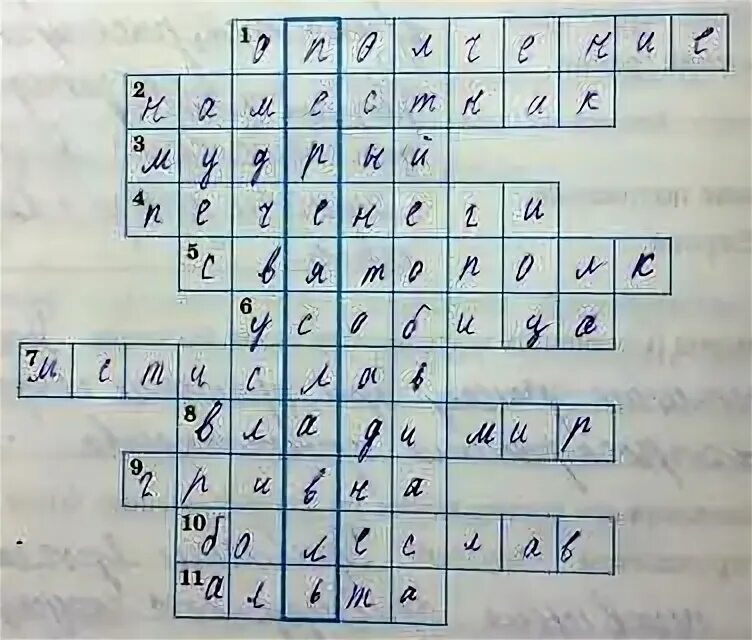 1 ополчение
2 наместник
3 мудрый
4 печенеги
5 святополк
6 усобица
7 мстислав
8 владимир
9 гривна
10 болеслав
11 альта